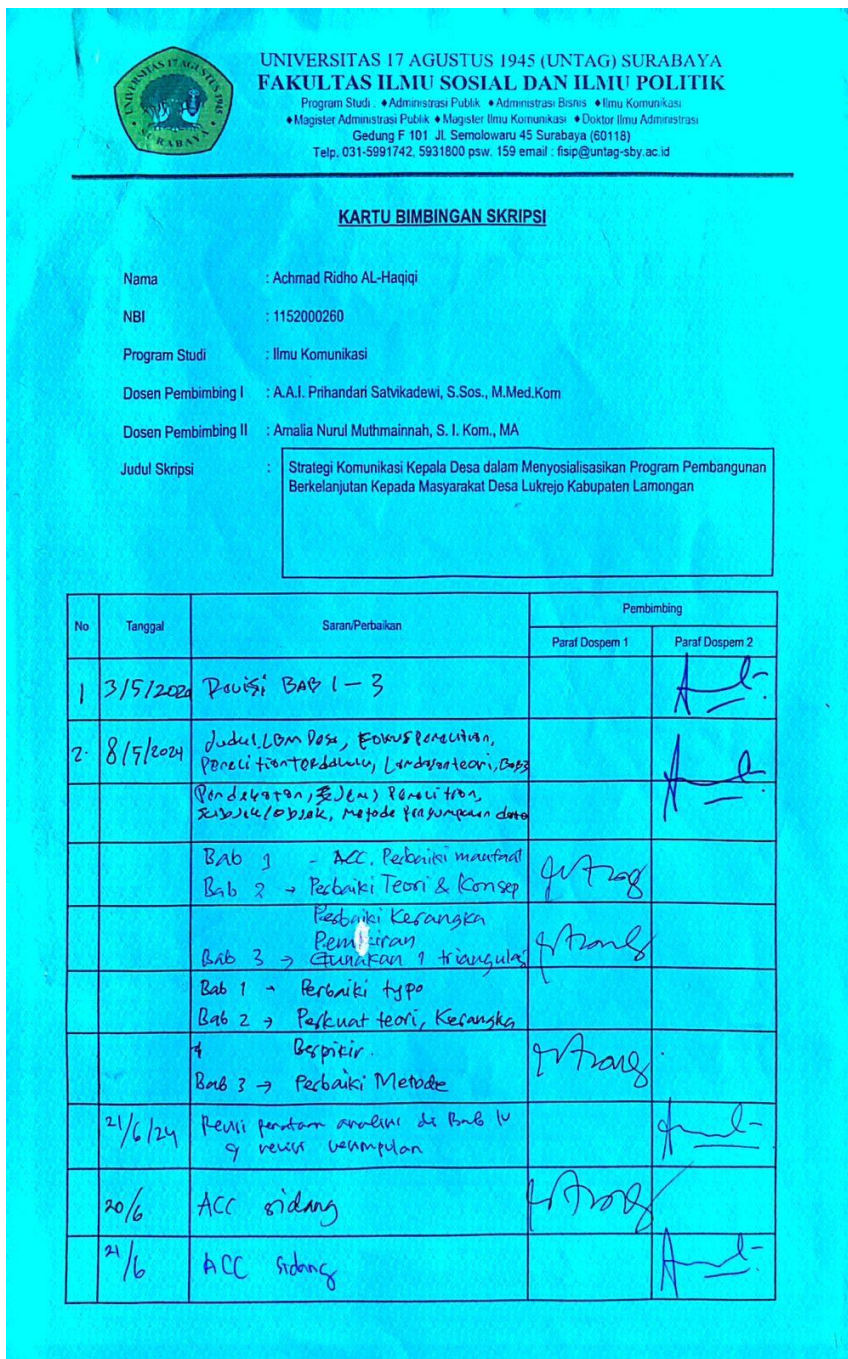 UNIVERSITAS 17 AGUSTUS 1945
SURABAYA
UNIVERSITAS 17 AGUSTUS 1945 (UNTAG) SURABAYA
FAKULTAS ILMU SOSIAL DAN ILMU POLITIK
Program Studi : ♦Administrasi Publik ♦Administrasi Bisnis ♦Ilmu Komunikasi
♦Magister Administrasi Publik ♦Magister Ilmu Komunikasi ♦Doktor Ilmu Administrasi
Gedung F 101 Jl. Semolowaru 45 Surabaya (60118)
Telp. 031-5991742, 5931800 psw. 159 email : fisip@untag-sby.ac.id
KARTU BIMBINGAN SKRIPSI
Nama : Achmad Ridho AL-Haqiqi
NBI : 1152000260
Program Studi : Ilmu Komunikasi
Dosen Pembimbing I : A.A.I. Prihandari Satvikadewi, S.Sos., M.Med.Kom
Dosen Pembimbing II : Amalia Nurul Muthmainnah, S. I. Kom., MA
Judul Skripsi : Strategi Komunikasi Kepala Desa dalam Menyosialisasikan Program Pembangunan
Berkelanjutan Kepada Masyarakat Desa Lukrejo Kabupaten Lamongan
No Tanggal Saran/Perbaikan Pembimbing
Paraf Dospem 1 Paraf Dospem 2
1 3/5/2024 Revisi BAB 1 - 3
2. 8/5/2024 Judul, LBM Fokus Penelitian,
Landasan teori, Bab 3
Pendekatan, Penelitian,
Subjek/Objek, Metode data
Bab 1 - ACC. Perbaiki manfaat
Bab 2 → Perbaiki Teori & Konsep
Perbaiki Kerangka
Pemikiran
Bab 3 → Gunakan 1 triangulasi
Bab 1 → Perbaiki typo
Bab 2 → Perkuat teori, Kerangka
Berpikir.
Bab 3 → Perbaiki Metode
21/6/24 Revisi analisis di Bab IV
& revisi kesimpulan
20/6 ACC sidang
21/6 ACC sidang